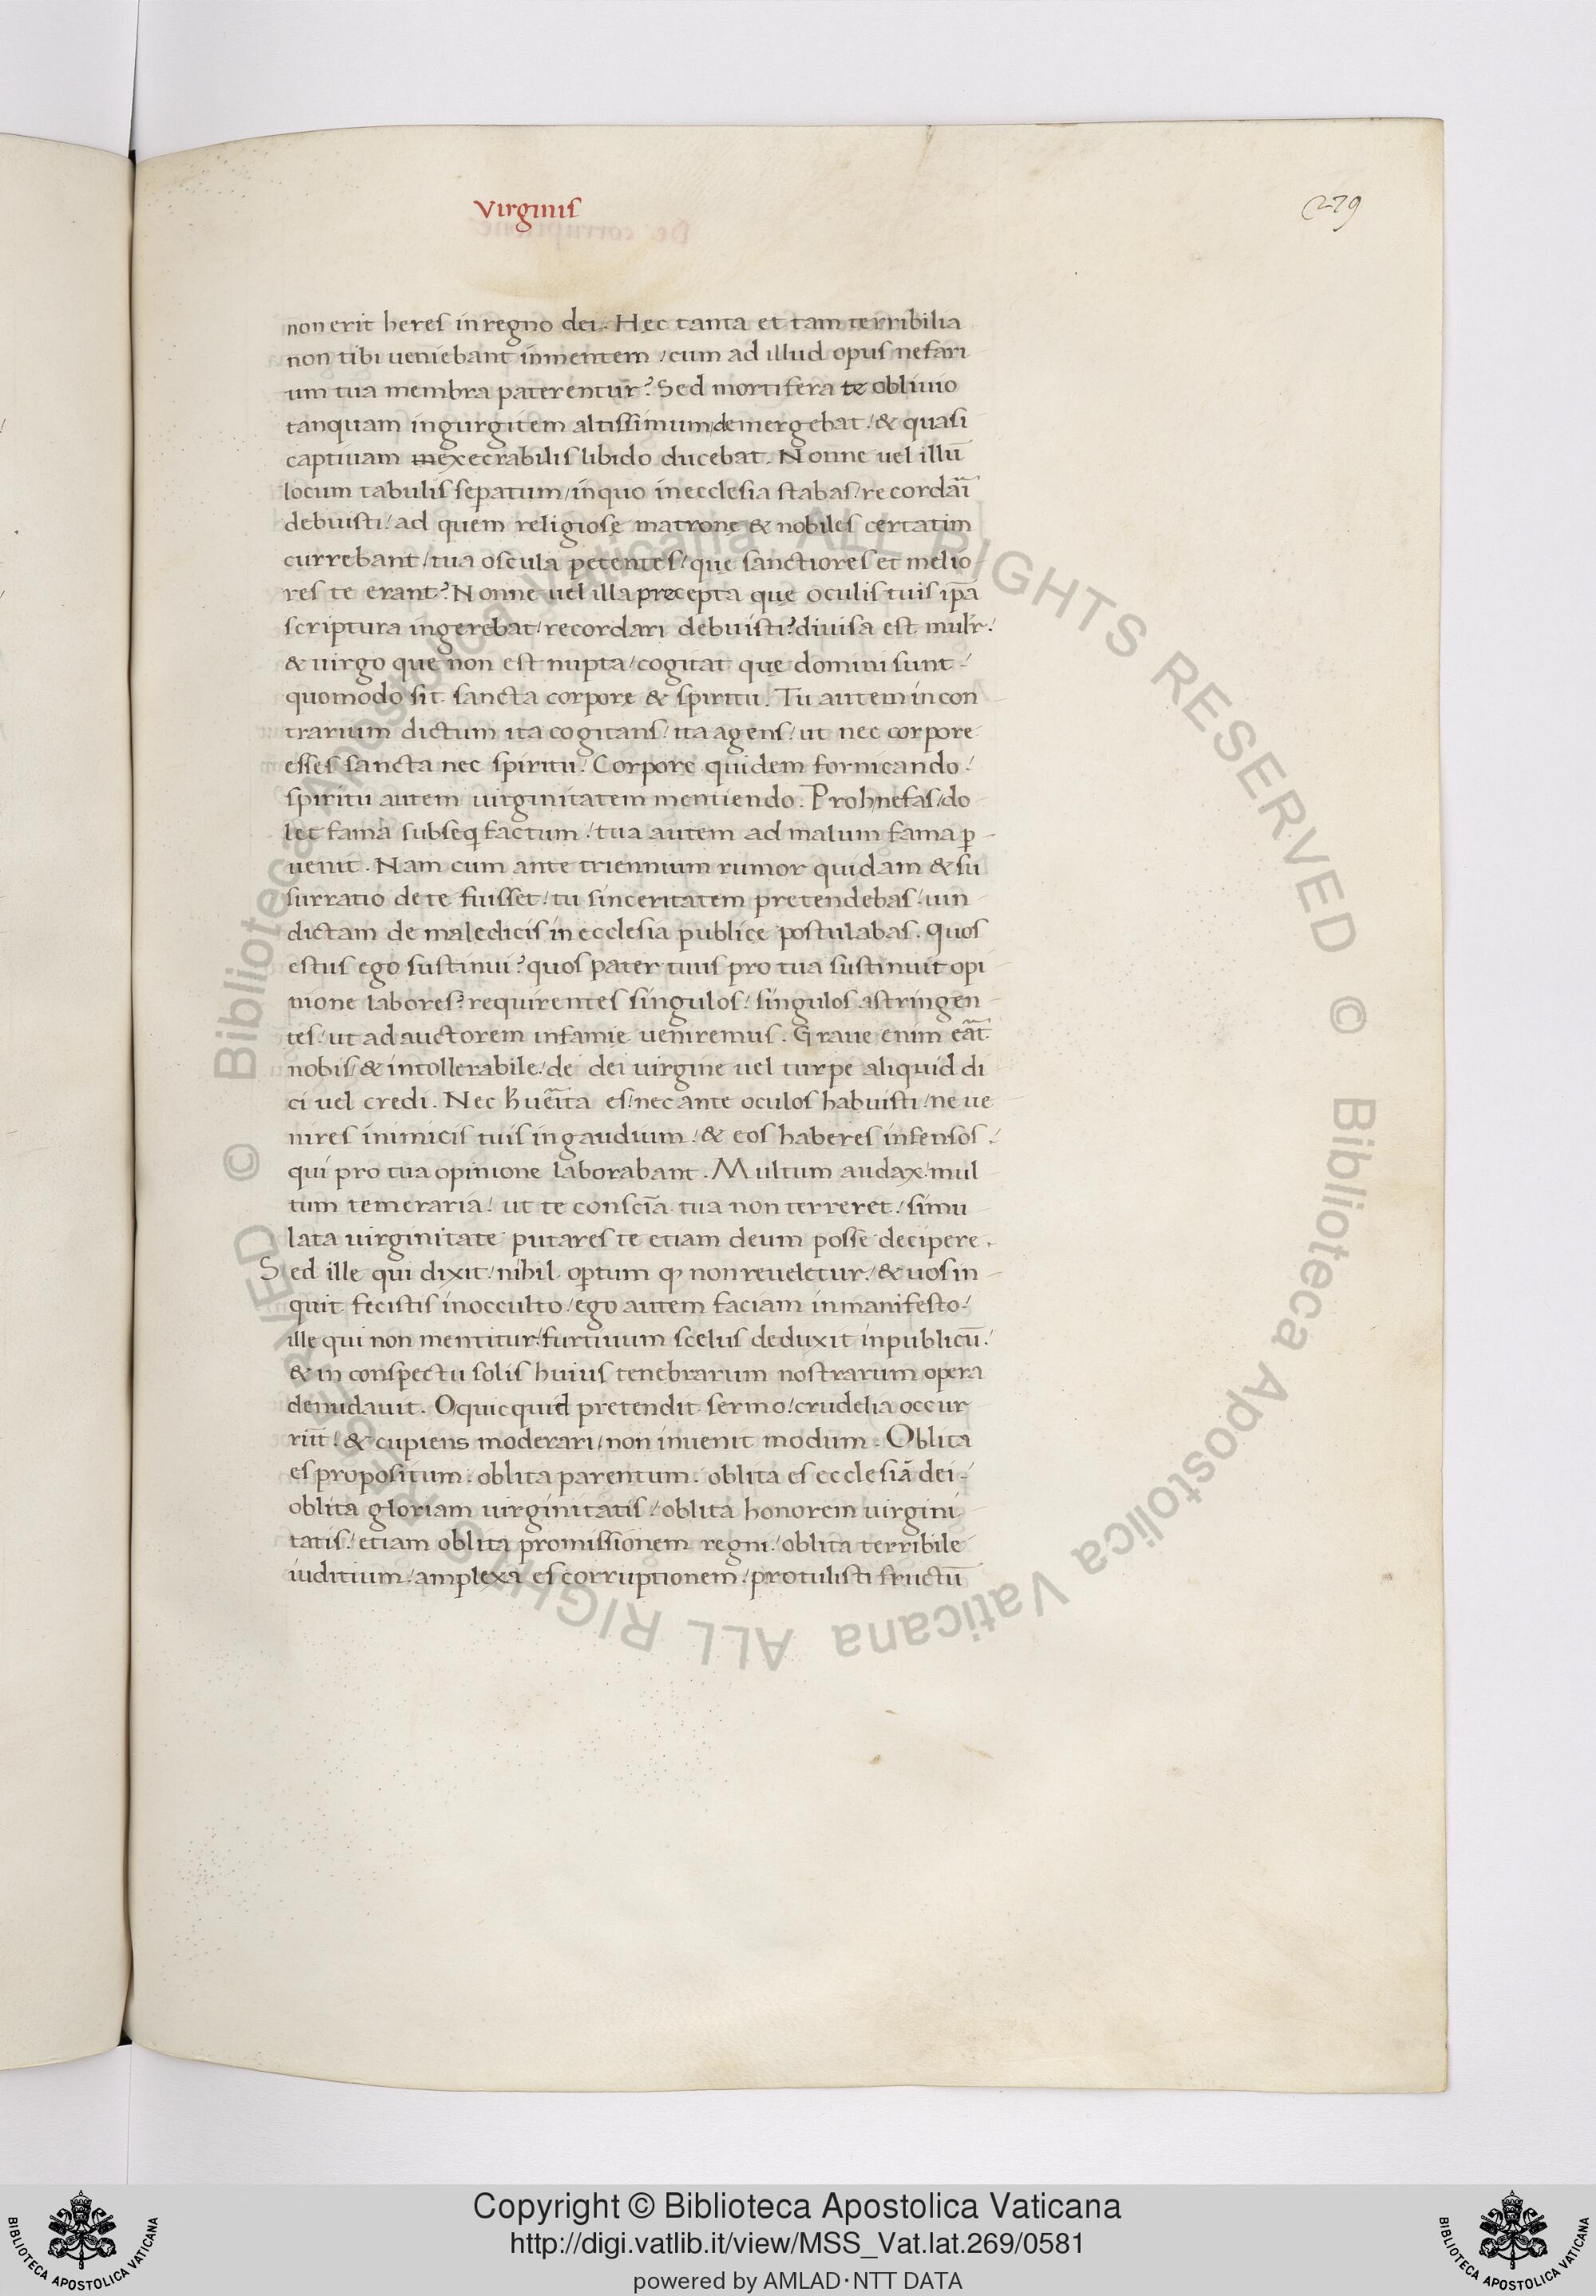 Virginis
279
non erit heres in regno dei. Hec tanta et tam terribilia
non tibi ueniebant inmentem / cum ad illud opus nefari
um tua membra paterentur? Sed mortifera te obliuio
tanquam ingurgitem altissimum / demergebat / & quasi
captiuam inexecrabilis libido ducebat. Nonne uel illū
locum tabulis sepatum / inquo in ecclesia stabas / recordāi
debuisti / ad quem religiosę matronę & nobiles certatim
currebant / tua oscula petentes / quę sanctiores et melio
res te erant? Nonne uel illa precepta quę oculis tuis ip̄a
scriptura ingerebat / recordari debuisti? diuisa est mulr̄ /
& uirgo quę non est nupta / cogitat quę domini sunt /
quomodo sit sancta corpore & spiritu. Tu autem in con
trarium dictum ita cogitans / ita agens / ut nec corpore
esses sancta nec spiritu / Corpore quidem fornicando /
spiritu autem uirginitatem mentiendo. Proh nefas / do
let fama subseq factum / tua autem ad malum fama p
uenit. Nam cum ante triennium rumor quidam & su
surratio de te fuisset / tu sinceritatem pretendebas / uin
dictam de maledicis in ecclesia publice postulabas. Quos
estus ego sustinui? quos pater tuus pro tua sustinuit opi
nione labores? requirentes singulos / singulos astringen
tes / ut ad auctorem infamię ueniremus. Graue enim eāt
nobis / & intollerabile / de dei uirgine uel turpe aliquid di
ci uel credi. Nec ħ uēita es / nec ante oculos habuisti / ne ue
nires inimicis tuis in gaudium / & eos haberes infensos /
qui pro tua opinione laborabant. Multum audax / mul
tum temeraria / ut te consciā tua non terreret / simu
lata uirginitate putares te etiam deum posse decipere.
Sed ille qui dixit / nihil optum qđ non reueletur / & uos in
quit fecistis in occulto / ego autem faciam in manifesto /
ille qui non mentitur / furtiuum scelus deduxit in publicū /
& in conspectu solis huius tenebrarum nostrarum opera
denudauit. O quicquid pretendit sermo / crudelia occur
rūt / & cupiens moderari / non inuenit modum. Oblita
es propositum. oblita parentum. oblita es ecclesiā dei /
oblita gloriam uirginitatis / oblita honorem uirgini
tatis / etiam oblita promissionem regni / oblita terribile
iuditium / amplexa es corruptionem / protulisti fructū
Copyright © Biblioteca Apostolica Vaticana
http://digi.vatlib.it/view/MSS_Vat.lat.269/0581
powered by AMLAD·NTT DATA
BIBLIOTECA APOSTOLICA VATICANA
BIBLIOTECA APOSTOLICA VATICANA
© Biblioteca Apostolica Vaticana ALL RIGHTS RESERVED
© Biblioteca Apostolica Vaticana ALL RIGHTS RESERVED